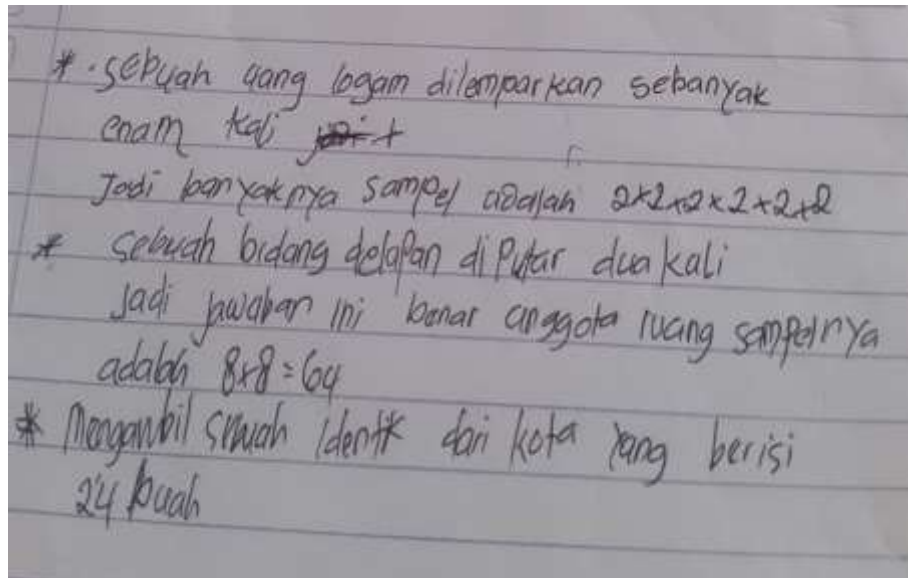 * . sebuah uang logam dilemparkan sebanyak
enam kali
Jadi banyaknya sampel adalah 2×2×2×2×2×2
* sebuah bidang delapan di Putar dua kali
Jadi jawaban ini benar anggota ruang sampelnya
adalah 8×8=64
* Mengambil identik dari kota yang berisi
24 buah